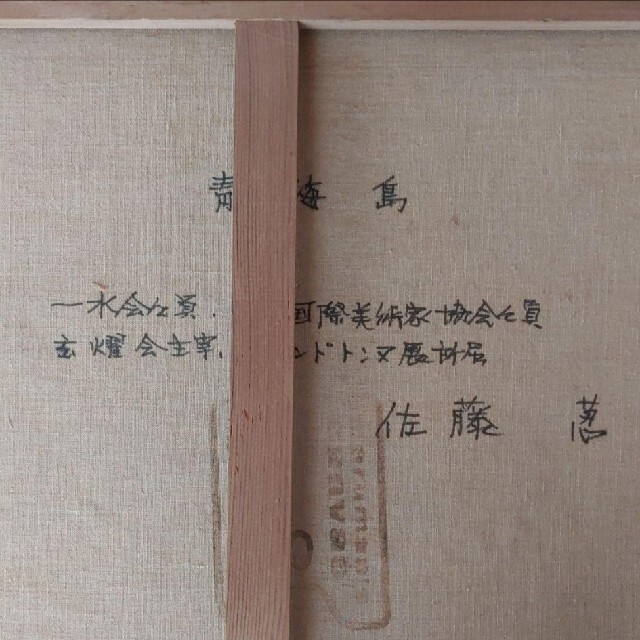 青 海 島
一水会会員. 国際美術家協会会員
玄燿会主宰. ンドトン文展
佐藤
anvas